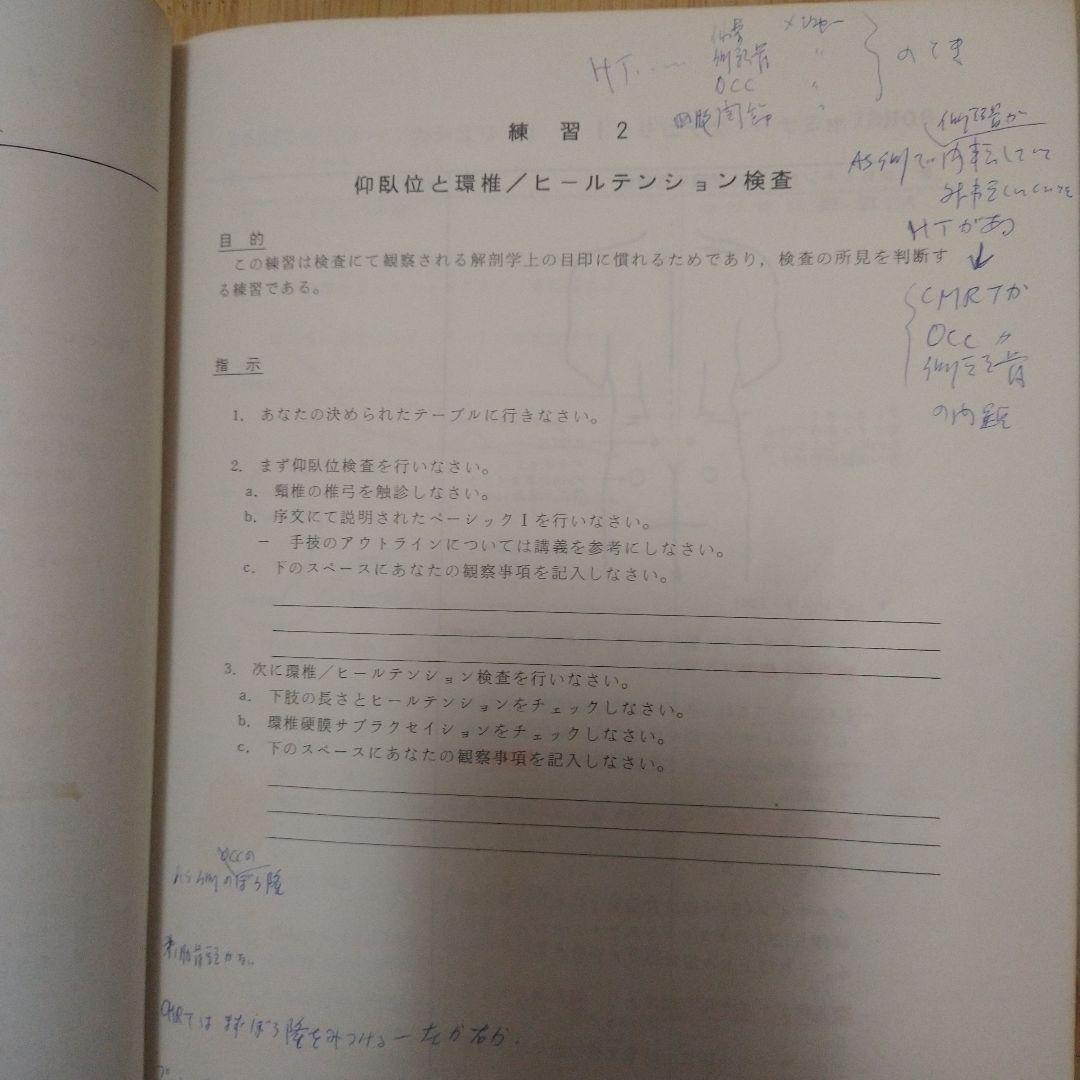 HT
OCC
のとき
練習2
AS側で内転していて
仰臥位と環椎／ヒールテンション検査
HTがある
↓
目的
この練習は検査にて観察される解剖学上の目印に慣れるためであり，検査の所見を判断す
る練習である。
CMRTか
OCC 〃
側頭骨
の問題
指示
1. あなたの決められたテーブルに行きなさい。
2. まず仰臥位検査を行いなさい。
a. 頸椎の椎弓を触診しなさい。
b. 序文にて説明されたベーシックIを行いなさい。
－ 手技のアウトラインについては講義を参考にしなさい。
c. 下のスペースにあなたの観察事項を記入しなさい。
3. 次に環椎／ヒールテンション検査を行いなさい。
a. 下肢の長さとヒールテンションをチェックしなさい。
b. 環椎硬膜サブラクセイションをチェックしなさい。
c. 下のスペースにあなたの観察事項を記入しなさい。
OCCの
側のぼう隆
では まずぼう隆をみつける－左か右か.